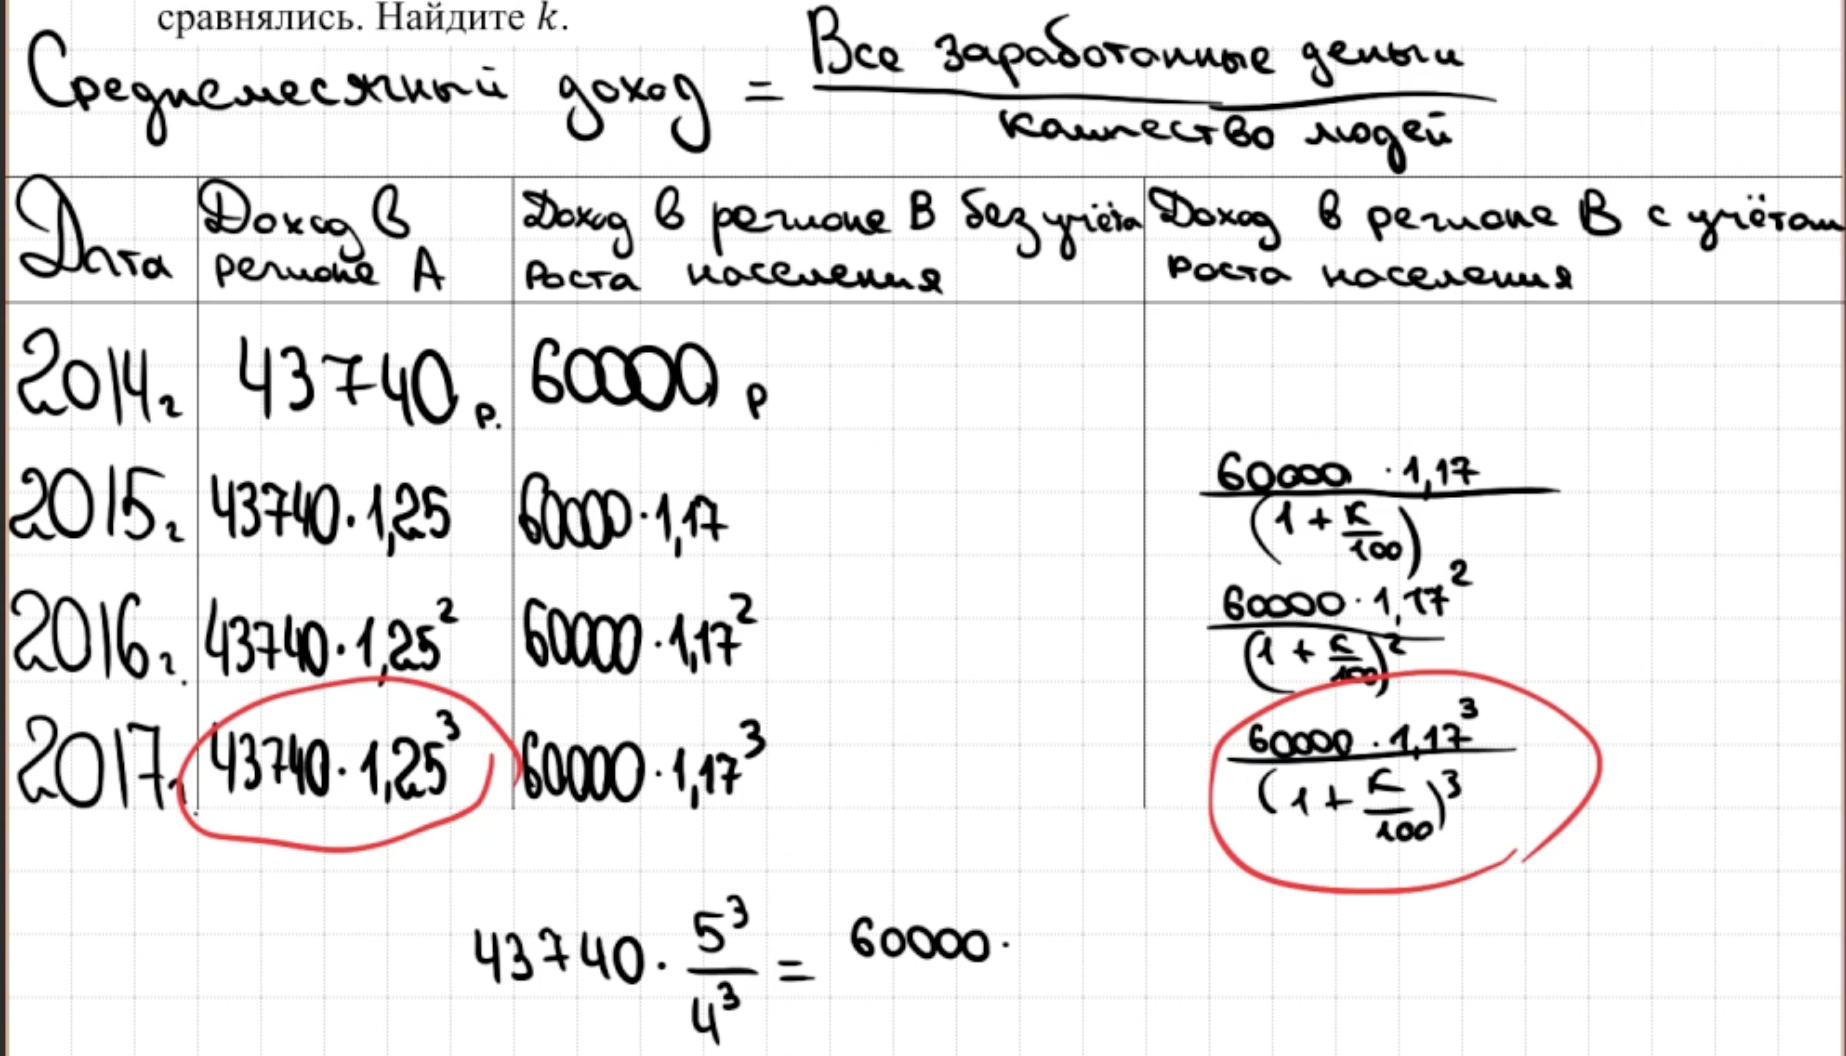 сравнялись. Найдите k.
Среднемесячный доход = Все заработанные деньги / количество людей
Дата | Доход в регионе А | Доход в регионе В без учёта роста населения | Доход в регионе В с учётом роста населения
2014г | 43740 р. | 60000 р
2015г | 43740·1,25 | 60000·1,17 | 60000·1,17 / (1 + к/100)
2016г. | 43740·1,25² | 60000·1,17² | 60000·1,17² / (1 + к/100)²
2017г. | 43740·1,25³ | 60000·1,17³ | 60000·1,17³ / (1 + к/100)³
43740 · 5³/4³ = 60000·